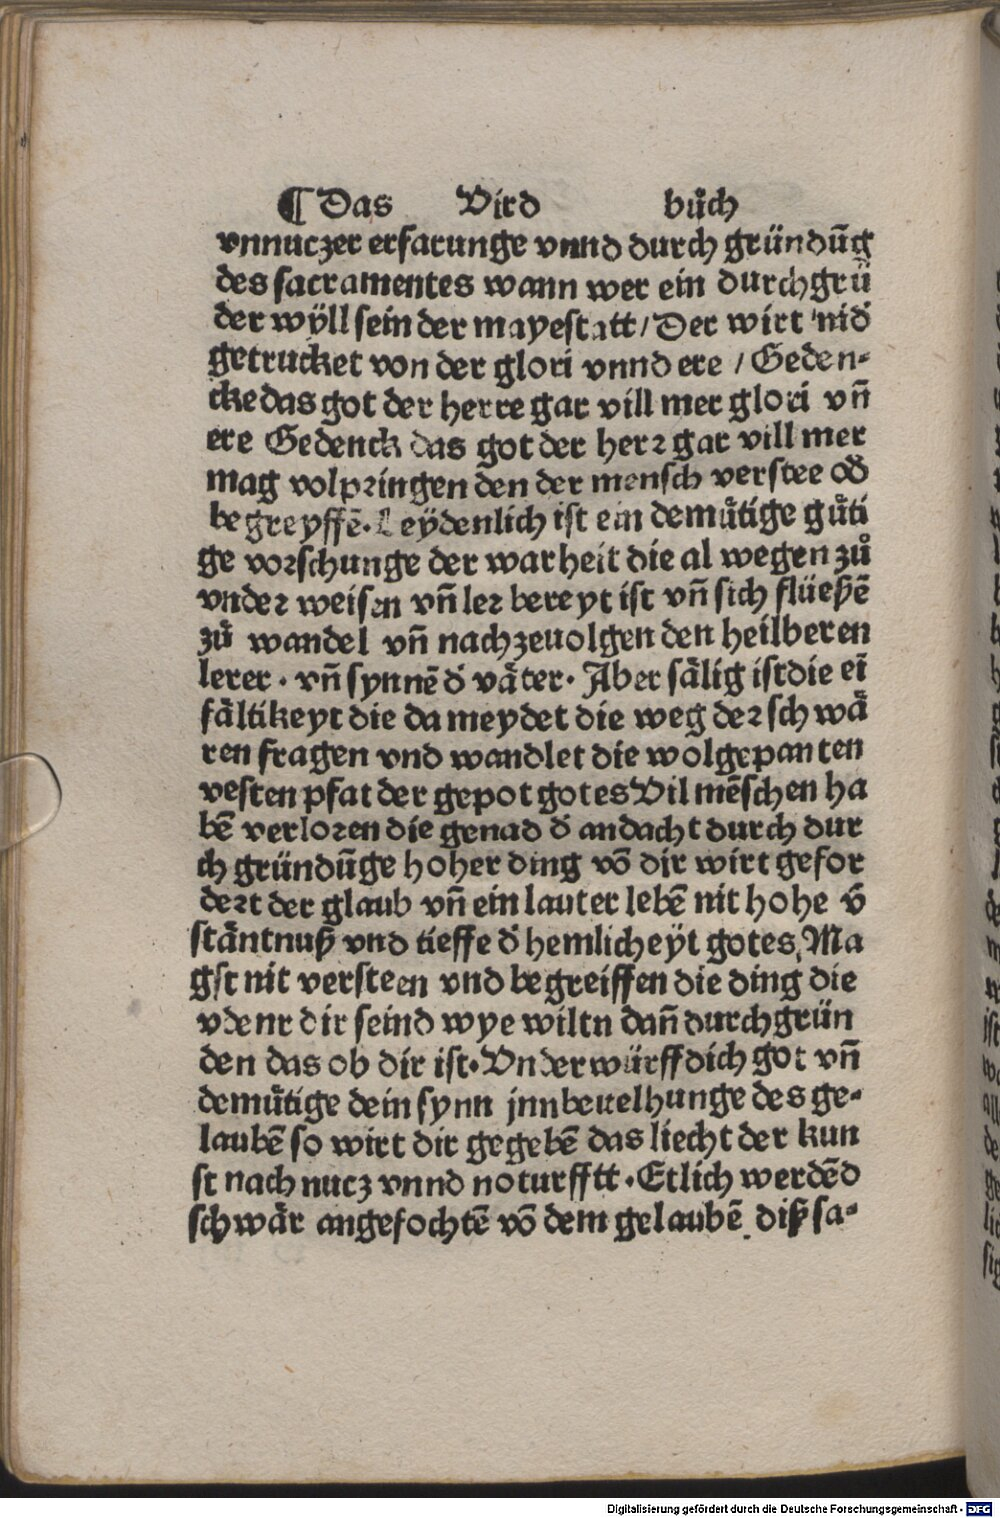 ¶ Das Vird bůch
vnnuczer erfarunge vnnd durch gründūg
des sacramentes wann wer ein durchgrü
der wÿll sein der mayestatt / Der wirt nidð
getrucket von der glori vnnd ere / Geden⸗
cke das got der herre gar vill mer glori vñ
ere Gedenck das got der herꝛ gar vill mer
mag volpꝛingen den der mensch verstee oð
begreyffē. Leÿdenlich ist ein demuͤtige guͤti
ge voꝛschunge der warheit die al wegen zů
vndeꝛ weisen vñ leꝛ bereyt ist vñ sich flüeßē
zů wandel vñ nachzeuolgen den heilberen
lerer . vñ synnē ð vaͤter. Aber saͤlig ist die eī
faͤltikeyt die da meydet die weg deꝛ schwaͤ
ren fragen vnd wandlet die wolgepanten
vesten pfat der gepot gotes Vil mēschen ha
bē verloꝛen die genad ð andacht durch dur
ch gründūge hoher ding vō dir wirt gefor
deꝛt der glaub vñ ein lauter lebē nit hohe v̄
staͤntnuß vnd tieffe ð hemlicheÿt gotes. Ma
gst nit versteen vnd begreiffen die ding die
vdenr dir seind wye wiltu dañ durchgrün
den das ob dir ist. Vnderwürff dich got vñ
demuͤtige dein synn jnnbeuelhunge des ge⸗
laubē so wirt dir gegebē das liecht der kun
st nach nucz vnnd noturfftt . Etlich werdēd
schwaͤr angefochtē vō dem gelaubē . diß sa⸗
Digitalisierung gefördert durch die Deutsche Forschungsgemeinschaft - DFG